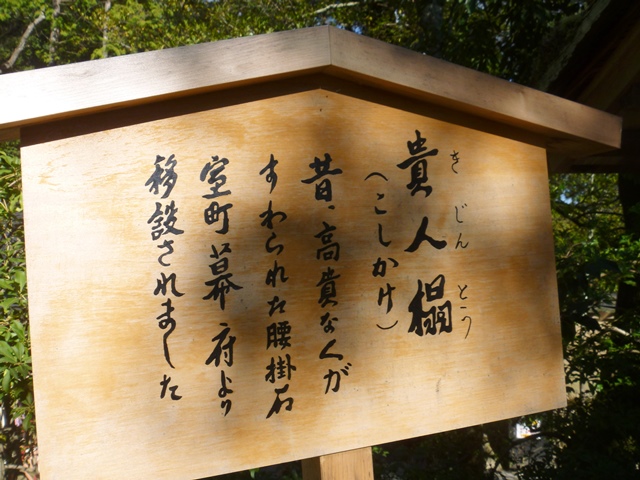 きじんとつ
貴人榻
(こしかけ)
昔、高貴なくが
すわられた腰掛石
室町幕府より
移設されました